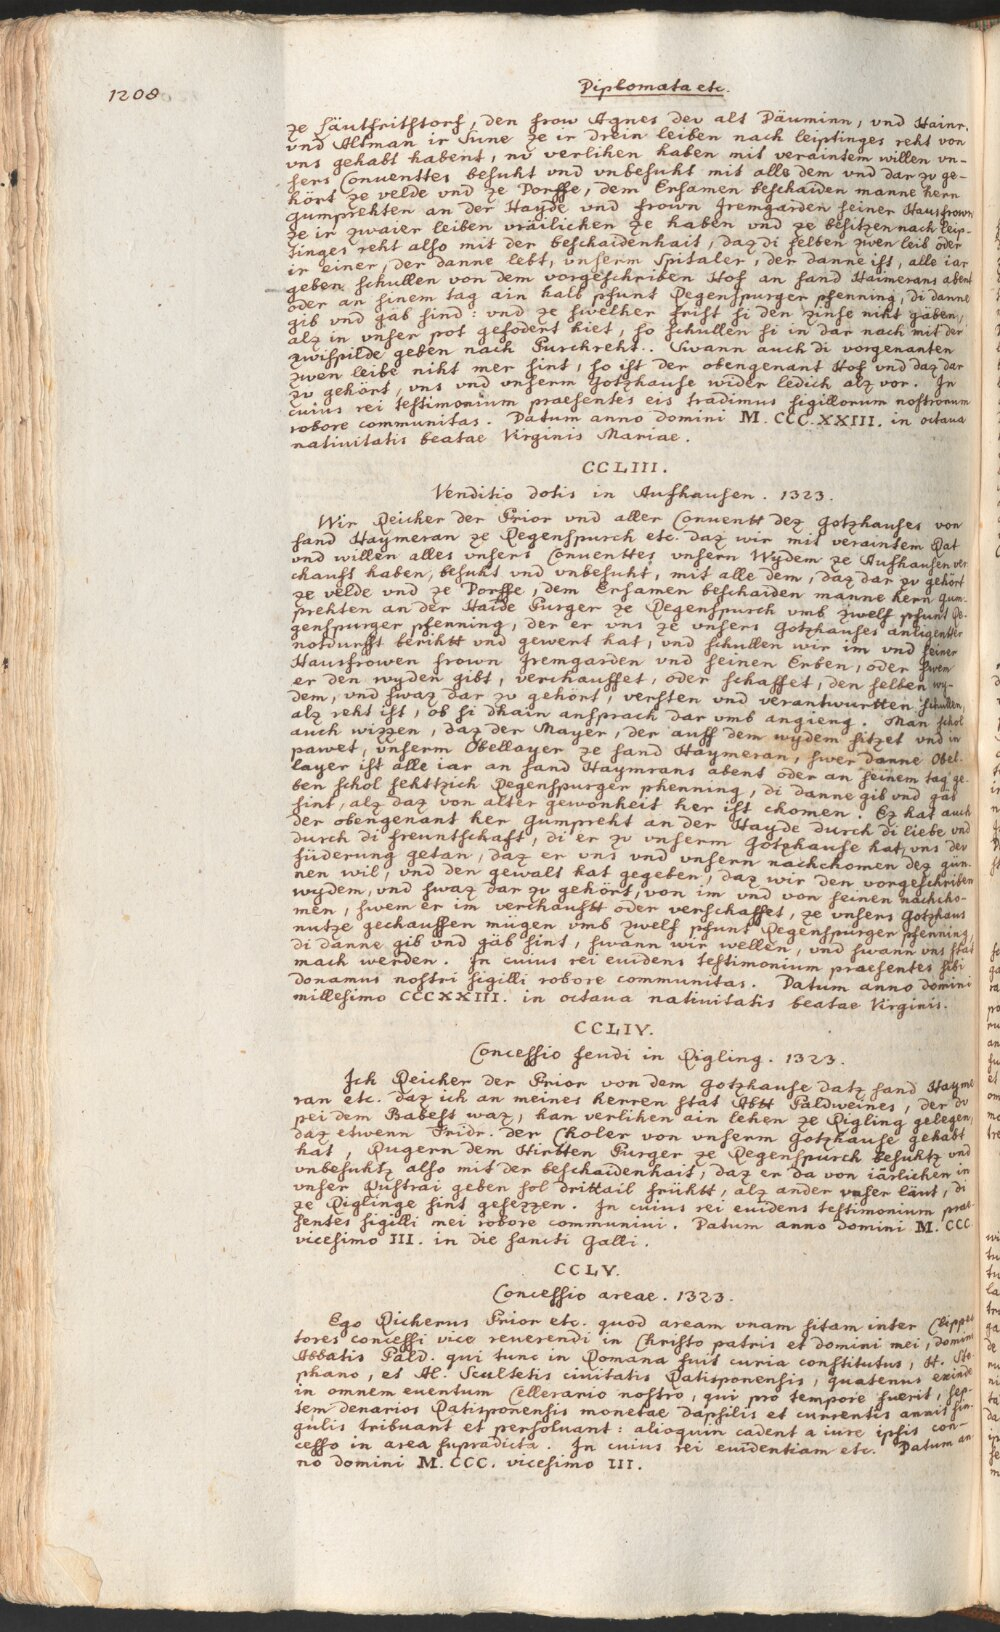 1208
Diplomata etc.
ze säutfrithstorf, den frow Agnes dev alt Däuminn, vnd Hainr.
vnd Altman ir Sune ze ir drein leiben nach leiptinges reht von
vns gehabt habent, nv verlihen haben mit veraintem willen vn-
sers Conuenttes besuht vnd vnbesuht mit alle dem vnd dar zv ge-
hört ze velde vnd ze Dorffe, dem Ersamen beschaiden manne hern
Gumprehten an der Hayde vnd frown Jremgarden seiner Hausfrown
ze ir zwaier leiben vräilichen ze haben vnd ze besitzen nach leip-
tinges reht also mit der beschaidenhait, daz di selben zwen leib oder
ir einer, der danne lebt, vnserm Spitaler, der danne ist, alle iar
geben schullen von dem vorgeschriben Hof an sand Haimerans abent
oder an sinem tag ain halb pfunt Regenspurger pfenning, di danne
gib vnd gäb sind: vnd ze swelher frist si den zinse niht gäben,
alz in vnser pot gefodert hiet, so schullen si in dar nach mit der
zwispilde geben nach Purchreht.. Swann auch di vorgenanten
zwen leibe niht mer sint, so ist der obengenant Hof vnd daz dar
zv gehört, vns vnd vnserm Gotzhause wider ledich alz vor. In
cuius rei testimonium praesentes eis tradimus sigillorum nostrorum
robore communitas. Datum anno domini M. CCC. XXIII. in octaua
natiuitatis beatae Virginis Mariae.
CCLIII.
Venditio dotis in Aufhausen. 1323.
Wir Reicher der Prior vnd aller Conuentt dez Gotzhauses von
sand Haymeran ze Regenspurch etc. daz wir mit veraintem Rat
vnd willen alles vnsers Conuenttes vnsern Wydem ze Aufhausen ver
chauft haben, besuht vnd vnbesuht, mit alle dem, daz dar zv gehört
ze velde vnd ze Dorffe, dem Ersamen beschaiden manne hern Gum-
prehten an der Haide Purger ze Regenspurch vmb zwelf pfunt Re-
genspurger pfenning, der er vns ze vnsers Gotzhauses anligentter
notdurfft berihtt vnd gewert hat, vnd schullen wir im vnd seiner
Hausfrowen frown Jremgarden vnd seinen Erben, oder swem
er den wyden gibt, verchauffet, oder schaffet, den selben wy-
dem, vnd swaz dar zv gehört, versten vnd verantwurtten schullen,
alz reht ist, ob si dhain ansprach dar vmb angieng. Man schol
auch wizzen, daz der Mayer, der auff dem wydem sitzet vnd in
pawet, vnserm Obellayer ze sand Haymeran, swer danne Obel-
layer ist alle iar an sand Haymrans abent oder an seinem tag ge-
ben schol sehttzich Regenspurger phenning, di danne gib vnd gäb
sint, alz daz von alter gewonheit her ist chomen. Ez hat auch
der obengenant her Gumpreht an der Hayde durch di liebe vnd
durch di freuntschaft, di er zv vnserm Gotzhause hat, vns der
füderung getan, daz er vns vnd vnsern nachchomen dez gün-
nen wil, vnd den gewalt hat gegeben, daz wir den vorgeschriben
wydem, vnd swaz dar zv gehört, von im vnd von seinen nachcho-
men, swem er im verchauftt oder verschaffet, ze vnsers Gotzhaus
nutze gechauffen mügen vmb zwelf pfunt Regenspurger pfenning,
di danne gib vnd gäb sint, swann wir wellen, vnd swann vns stat
mach werden. In cuius rei euidens testimonium praesentes sibi
donamus nostri sigilli robore communitas. Datum anno domini
millesimo CCCXXIII. in octaua natiuitatis beatae Virginis.
CCLIV.
Concessio feudi in Rigling. 1323.
Ich Reicher der Prior von dem Gotzhause datz sand Hayme
ran etc. daz ich an meines herren stat Abtt Paldweines, der do
pei dem Babest waz, han verlihen ain lehen ze Rigling gelegen,
daz etwenn Fridr. der Choler von vnserm Gotzhause gehabt
hat, Rugern dem Hirtten Purger ze Regenspurch besuhtz vnd
vnbesuhtz also mit der beschaidenhait, daz er da von iärlichen in
vnser Pustrai geben sol drittail frühtt, alz ander vnser läut, di
ze Riglinge sint gesezzen. In cuius rei euidens testimonium prae-
sentes sigilli mei robore communini. Datum anno domini M. CCC
vicesimo III. in die sancti Galli.
CCLV.
Concessio areae. 1323.
Ego Richerus Prior etc. quod aream vnam sitam inter Clippea
tores concessi vice reuerendi in Christo patris et domini mei, domini
Abbatis Pald. qui tunc in Romana fuit curia constitutus, H. Ste-
phano, et Al. Scultetis ciuitatis Ratisponensis, quatenus exinde
in omnem euentum Cellerario nostro, qui pro tempore fuerit, sep-
tem denarios Ratisponensis monetae dapsilis et currentis annis sin-
gulis tribuant et persoluant: alioquin cadent a iure ipsis con-
cesso in area supradicta. In cuius rei euidentiam etc. Datum an-
no domini M. CCC. vicesimo III.